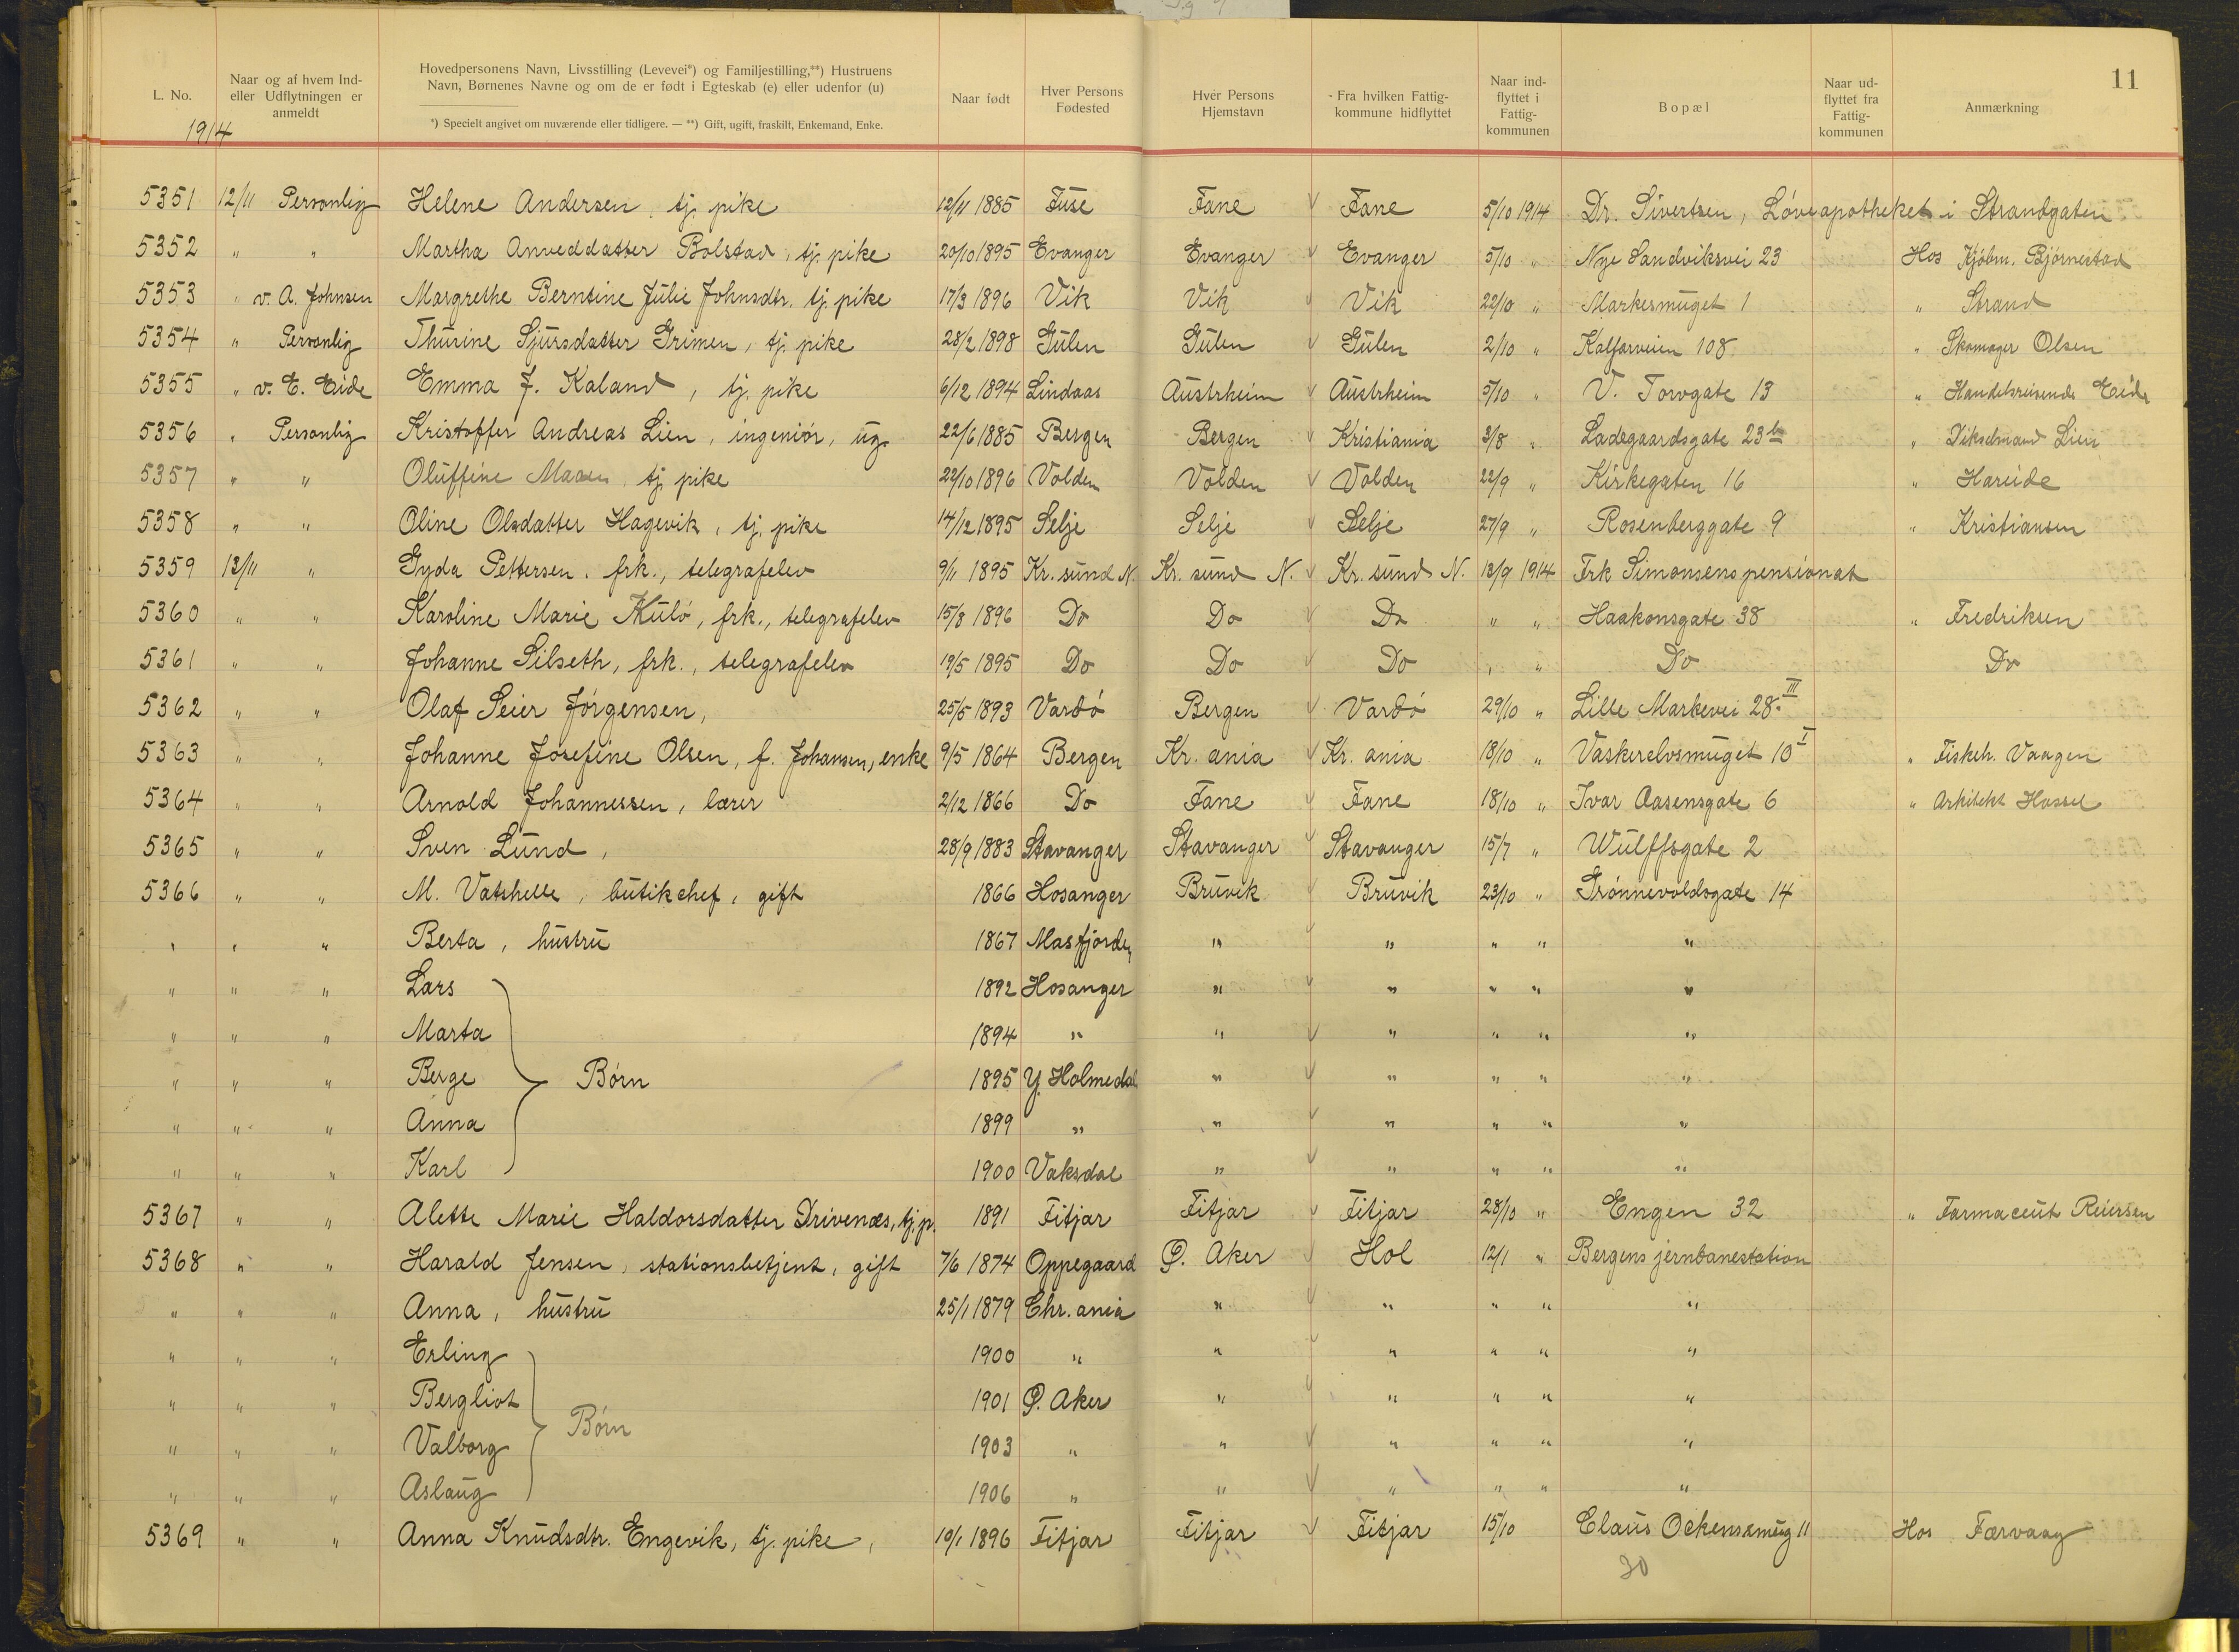 11
L. No.
Naar og af hvem Ind- eller Udflytningen er anmeldt
Hovedpersonens Navn, Livsstilling (Levevei*) og Familjestilling,**) Hustruens Navn, Børnenes Navne og om de er født i Egteskab (e) eller udenfor (u)
*) Specielt angivet om nuværende eller tidligere. — **) Gift, ugift, fraskilt, Enkemand, Enke.
Naar født
Hver Persons Fødested
Hver Persons Hjemstavn
Fra hvilken Fattigkommune hidflyttet
Naar indflyttet i Fattigkommunen
Bopæl
Naar udflyttet fra Fattigkommunen
Anmærkning
1914
5351 12/11 Personlig Helene Andersen, tj. pike 12/11 1885 Fuse Fane Fane 5/10 1914 Dr. Sivertsen, Løveapotheket i Strandgaten
5352 " " Martha Anveddatter Bolstad, tj. pike 20/10 1895 Evanger Evanger Evanger 5/10 " Nye Sandviksvei 23 Hos Kjøbm. Bjørnestad
5353 " v. A. Johnsen Margrethe Berntine Julie Johnsdtr. tj. pike 17/3 1896 Vik Vik Vik 22/10 " Markesmuget 1 " Strand
5354 " Personlig Thurine Sjursdatter Grimen, tj. pike 28/2 1898 Gulen Gulen Gulen 2/10 " Kalfarveien 108 " Skomager Olsen
5355 " v. E. Eide Emma J. Kaland, tj. pike 6/12 1894 Lindaas Austrheim Austrheim 5/10 " V. Torvgate 13 " Handelsreisende Eide
5356 " Personlig Kristoffer Andreas Lien, ingeniør, ug. 22/6 1885 Bergen Bergen Kristiania 3/8 " Ladegaardsgate 23b " Lien
5357 " " Oluffine tj. pike 22/10 1896 Volden Volden Volden 22/9 " Kirkegaten 16 " Hareide
5358 " " Oline Olsdatter Hagevik, tj. pike 14/12 1895 Selje Selje Selje 27/9 " Rosenberggate 9 " Kristiansen
5359 13/11 " Gyda Pettersen, frk., telegrafelev 9/11 1895 Kr. sund N. Kr. sund N. Kr. sund N. 13/9 1914 Frk Simonsens pensionat
5360 " " Karoline Marie Kulø, frk., telegrafelev 15/8 1896 Do Do Do " " Haakonsgate 38 " Fredriksen
5361 " " Johanne Silseth, frk., telegrafelev 19/5 1895 Do Do Do " " Do Do
5362 " " Olaf Seier Jørgensen, 25/5 1893 Vardø Bergen Vardø 29/10 " Lille Markevei 28 III
5363 " " Johanne Josefine Olsen, f. Johansen, enke 9/5 1864 Bergen Kr. ania Kr. ania 18/10 " Vaskerelvsmuget 10 I " Fiskeh. Vaagen
5364 " " Arnold Johannessen, lærer 2/12 1866 Do Fane Fane 18/10 " Ivar Aasensgate 6 " Arkitekt Hassel
5365 " " Sven Lund, 28/9 1883 Stavanger Stavanger Stavanger 15/7 " Wulffsgate 2
5366 " " M. Vatshelle, butikchef, gift 1866 Hosanger Bruvik Bruvik 23/10 " Grønnevoldsgate 14
" " " Berta, hustru 1867 Masfjorden " " " " "
" " " Lars 1892 Hosanger " " " " "
" " " Marta 1894 " " " " " "
" " " Berge Børn 1895 Y. Holmedal " " " " "
" " " Anna 1899 " " " " " "
" " " Karl 1900 Vaksdal " " " " "
5367 " " Alette Marie Haldorsdatter Drivenæs, tj. p. 1891 Fitjar Fitjar Fitjar 28/10 " Engen 32 " Farmaceut Reiersen
5368 " " Harald Jensen, stationsbetjent, gift 7/6 1874 Oppegaard Ø. Aker Hol 12/1 " Bergens jernbanestation
" " " Anna, hustru 25/1 1879 Chr. ania " " " " "
" " " Erling 1900 " " " " " "
" " " Bergliot 1901 Ø. Aker " " " " "
Børn
" " " Valborg 1903 " " " " " "
" " " Aslaug 1906 " " " " " "
5369 " " Anna Knudsdtr. Engevik, tj. pike, 10/1 1896 Fitjar Fitjar Fitjar 15/10 Claus Ockensmug 11 Hos Færvaag
30